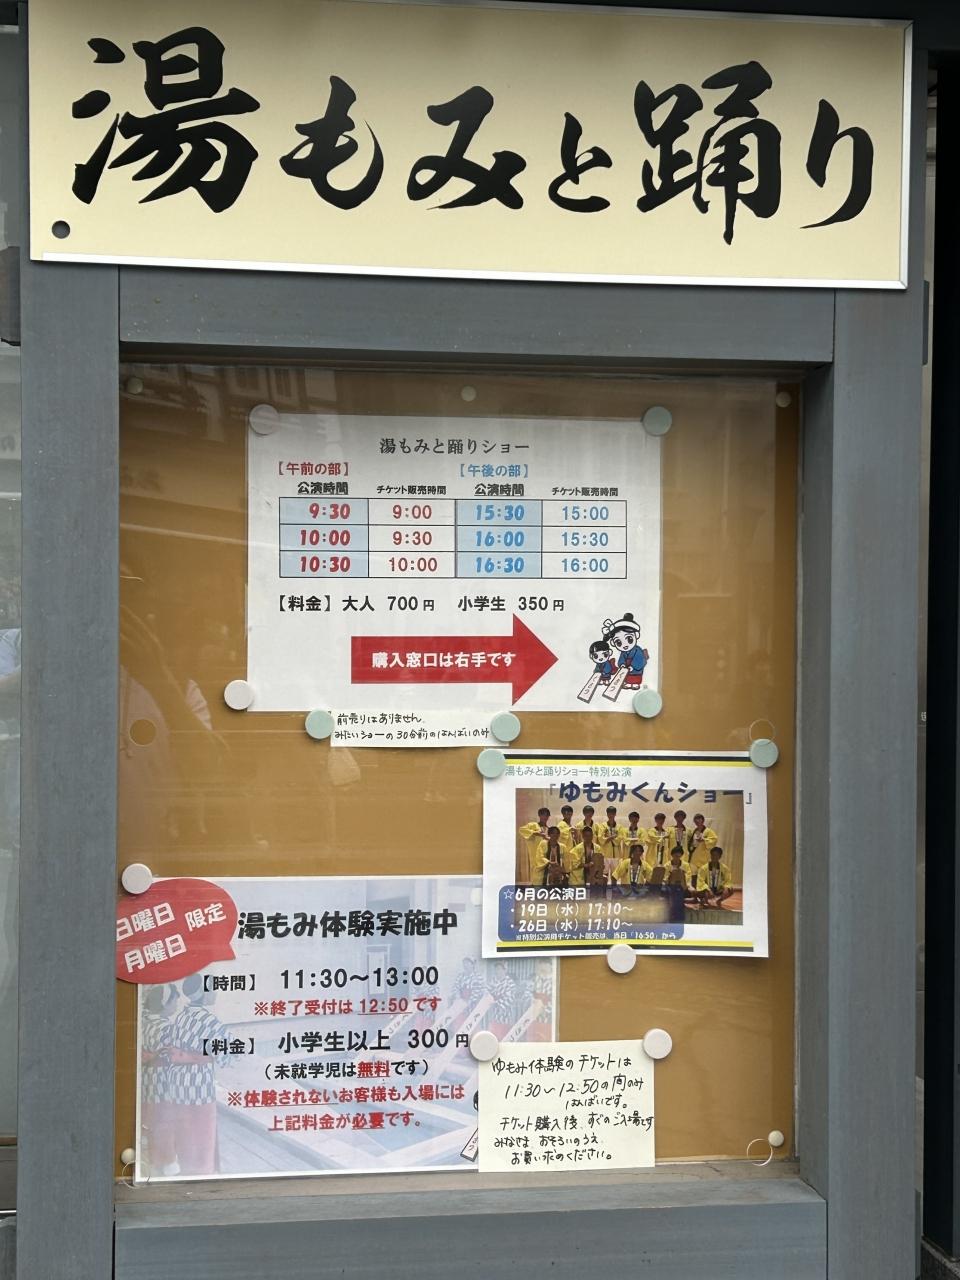 湯もみと踊り
湯もみと踊りショー
【午前の部】 【午後の部】
公演時間 チケット販売時間 公演時間 チケット販売時間
9:30 9:00 15:30 15:00
10:00 9:30 16:00 15:30
10:30 10:00 16:30 16:00
【料金】大人 700円 小学生 350円
購入窓口は右手です
前売りはありません.
みたいショーの30分前のはんばいのみ
湯もみと踊りショー特別公演
『ゆもみくんショー』
☆6月の公演日
・19日（水）17:10～
・26日（水）17:10～
※特別公演用チケット販売は、当日「16:50」から
日曜日
月曜日
限定
湯もみ体験実施中
【時間】 11:30～13:00
※終了受付は 12:50です
【料金】 小学生以上 300円
（未就学児は無料です）
※体験されないお客様も入場には
上記料金が必要です。
ゆもみ体験のチケットは
11:30～12:50の間のみ
はんばいです。
チケット購入後、すぐのご入場です
みなさま おそろいのうえ、
お買い求めください。